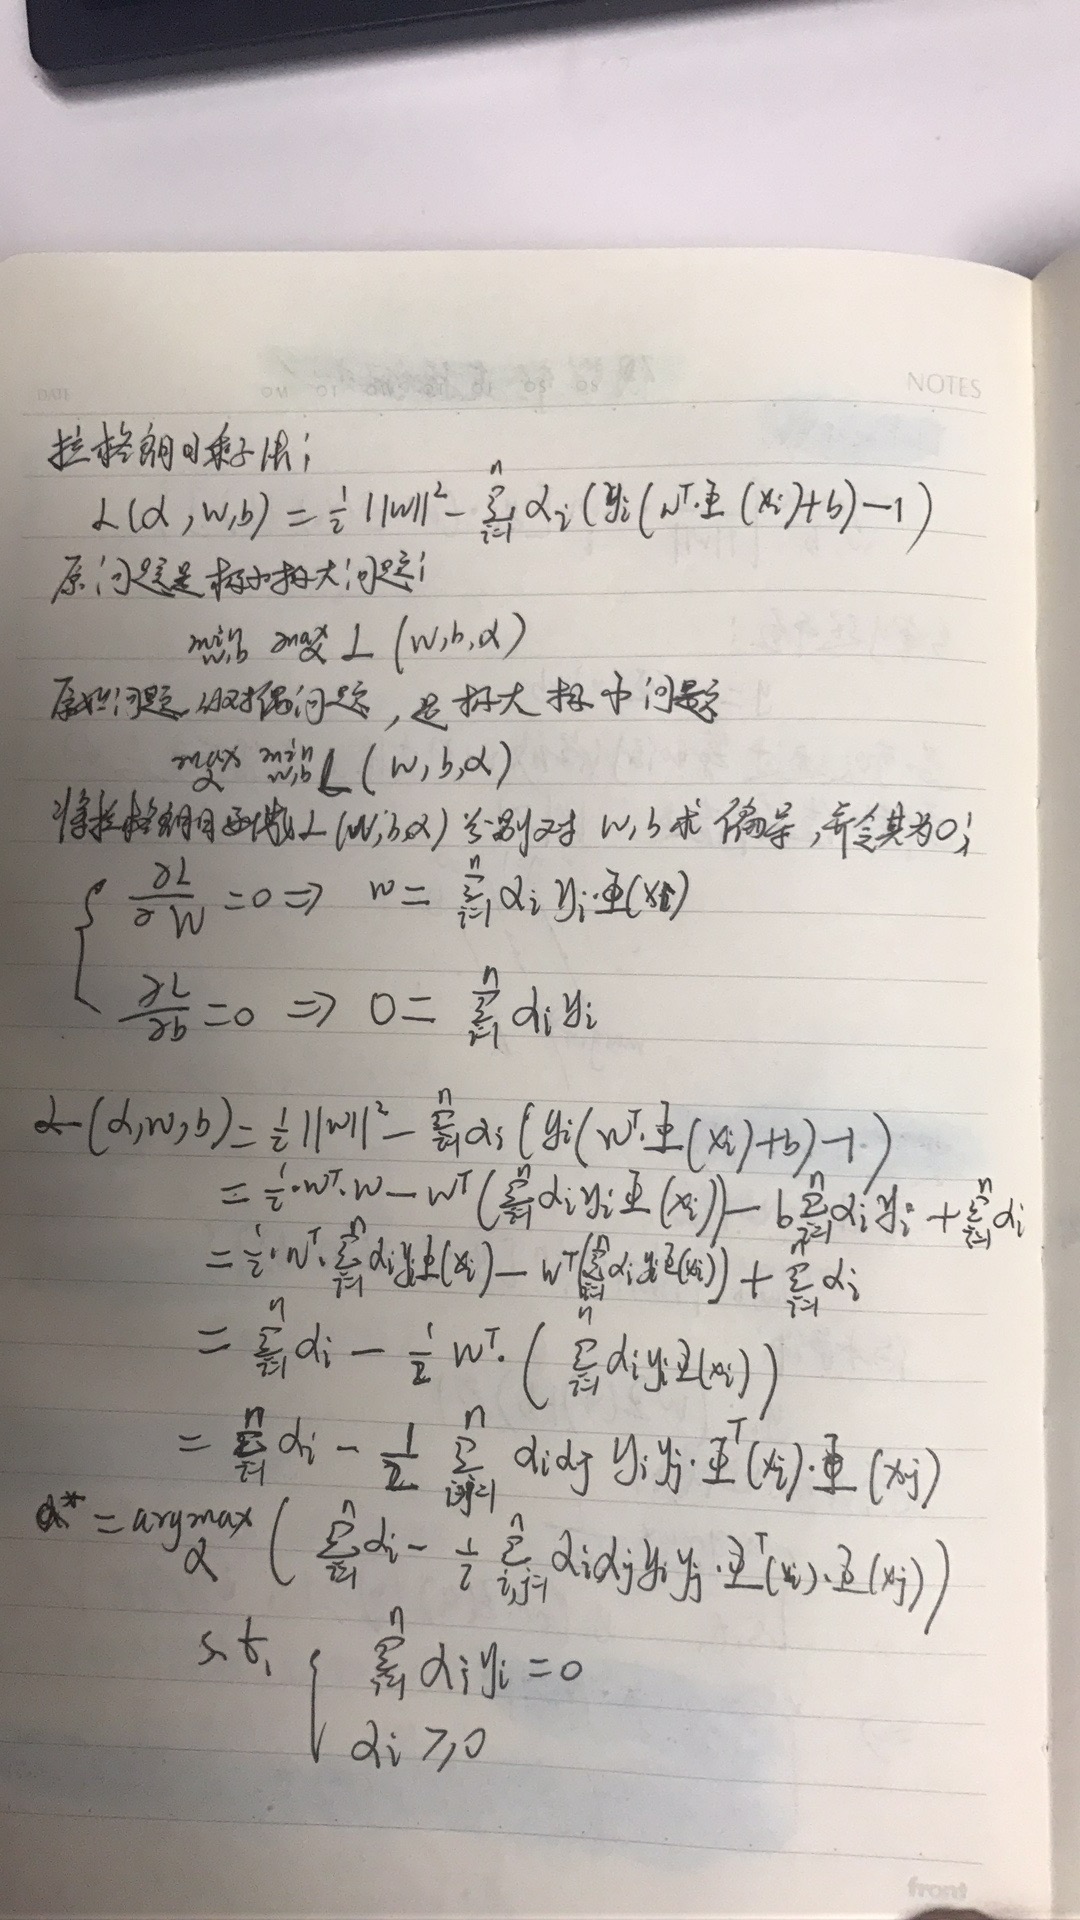 DATE
NOTES
拉格朗日乘子法;
L(α, w, b) = 1/2 ||w||² − Σ_{i=1}^{n} α_i (y_i (w^T·Φ(x_i)+b) −1)
原问题是极小极大问题;
min_{w,b} max_α L (w,b,α)
原始问题的对偶问题, 是极大极小问题
max_α min_{w,b} L (w,b,α)
将拉格朗日函数L(w,b,α)分别对 w,b求偏导, 并令其为0;
∂L/∂W = 0 ⇒ w = Σ_{i=1}^{n} α_i y_i·Φ(x_i)
∂L/∂b = 0 ⇒ 0 = Σ_{i=1}^{n} α_i y_i
L(α,w,b) = 1/2 ||w||² − Σ_{i=1}^{n} α_i (y_i(w^T·Φ(x_i)+b) −1)
= 1/2·w^T·w − w^T (Σ_{i=1}^{n} α_i y_i Φ(x_i)) − b Σ_{i=1}^{n} α_i y_i + Σ_{i=1}^{n} α_i
= 1/2·w^T·Σ_{i=1}^{n} α_i y_i Φ(x_i) − w^T(Σ_{i=1}^{n} α_i y_i Φ(x_i)) + Σ_{i=1}^{n} α_i
= Σ_{i=1}^{n} α_i − 1/2 w^T·(Σ_{i=1}^{n} α_i y_i Φ(x_i))
= Σ_{i=1}^{n} α_i − 1/2 Σ_{i,j=1}^{n} α_i α_j y_i y_j·Φ^T(x_i)·Φ(x_j)
α* = argmax_α (Σ_{i=1}^{n} α_i − 1/2 Σ_{i,j=1}^{n} α_i α_j y_i y_j·Φ^T(x_i)·Φ(x_j))
s.t. Σ_{i=1}^{n} α_i y_i = 0
α_i ≥ 0
front